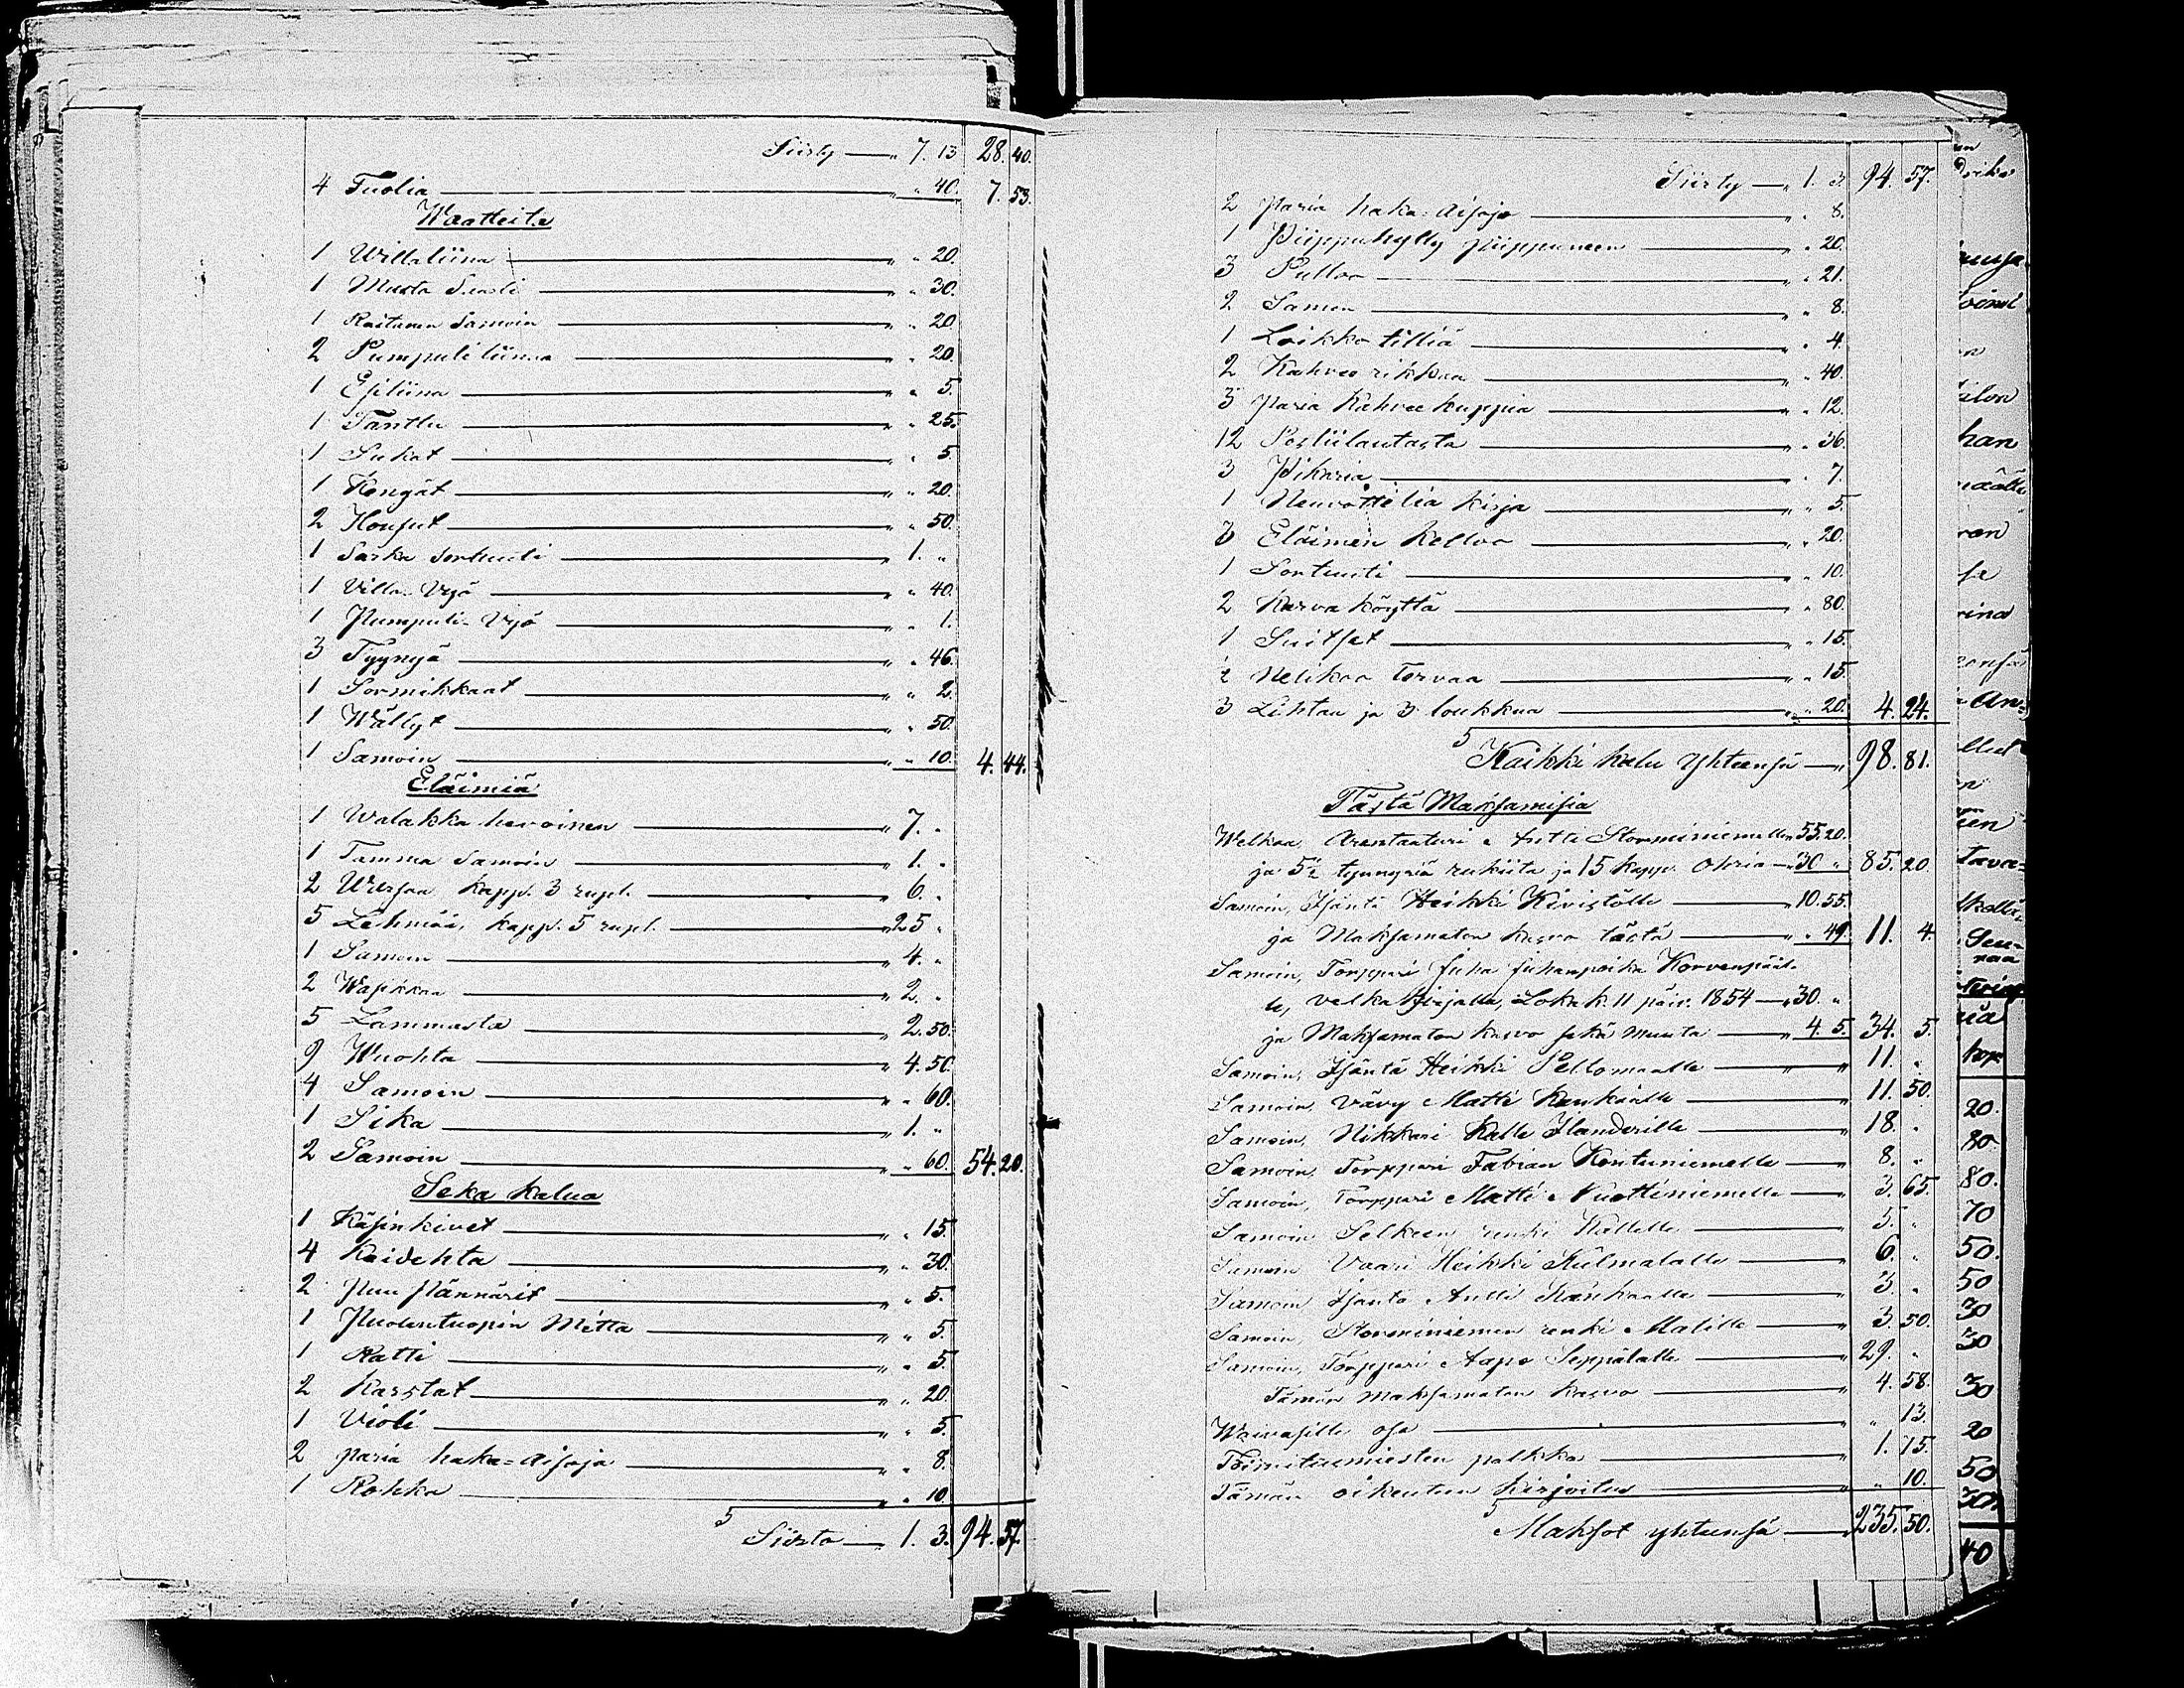 Siirty — " 7. 13 28. 40.
4 Tuolia — " " 40. 7. 53.
Waatteita
1 Willaliina — " " 20.
1 Musta Liivi — " " 30.
1 Raitanen Samoin — " " 20
2 Pumpuliliinaa — " " 20.
1 Esiliina — " " 5.
1 Tanttu — " " 25.
1 Sukat — " " 5
1 Kengät — " " 20.
2 Housut — " " 50.
1 Sarka Sortuuti — " 1. "
1 Villa-Vyö — " " 40.
1 Pumpuli-Vyö — " " 1.
3 Tyynyä — " " 46.
1 Sormikkaat — " " 2.
1 Wällyt — " " 50
1 Samoin — " " 10. 4. 44.
Eläimiä
1 Walakka hevoinen — " 7. "
1 Tamma Samoin — " 1. "
2 Warsaa, kapp. 3 rupl. — " 6. "
5 Lehmää, kapp. 5 rupl. — " 25 "
1 Samoin — " 4. "
2 Wasikkaa — " 2. "
5 Lammasta — " 2. 50.
9 Wuohta — " 4. 50.
4 Samoin — " " 60.
1 Sika — " 1. "
2 Samoin — " " 60. 54. 20.
Seka kalua
1 Käsinkivet — " " 15.
4 Kaidehta — " " 30.
2 Puu Pännärit — " " 5.
1 Puolentuopin Mitta — " " 5.
1 Ratti — " " 5.
2 Karstat — " " 20.
1 Violi — " " 5.
2 paria haka-Aisoja — " " 8.
1 Rohka — " " 10.
Siirtä — " 1. 3. 94. 57.
Siirty — " 1. 3. 94. 57.
2 paria haka-Aisoja — " " 8.
1 Piippuhylly piippuneen — " " 20.
3 Pulloa — " " 21.
2 Samoin — " " 8.
1 Loikko tilliä — " " 4.
2 Kahvee rikkaa — " " 40.
3 paria Kahvee kuppia — " " 12.
12 Posliilautasta — " " 36.
3 Pikaria — " " 7.
1 Neuvottelia kirja — " " 5.
3 Eläimen Kelloa — " " 20.
1 Sortuuti — " " 10.
2 Karva köyttä — " " 80.
1 Suitset — " " 15.
½ Nelikko Tervaa — " " 15.
3 Lihtaa ja 3 loukkua — " " 20. 4. 24.
Kaikki kalu Yhteensä — " 98. 81.
Tästä Maksamisia
Welkaa, Arentaaturi Antti Storminiemelle " 55. 20.
ja 5½ tynnyriä rukiita ja 15 kapp. Ohria — " 30 " 85. 20.
Samoin, Isäntä Heikki Kivistölle — " 10. 55.
ja Maksamaton kasvo tästä — " " 49. 11. 4.
Samoin, Torppari Juha Juhanpoika Korvenpääl-
le, velka kirjalla, Lokak. 11 päiv. 1854 — " 30. "
ja Maksamaton kasvo sekä muuta — " 4. 5. 34. 5.
Samoin, Isäntä Heikki Pellomaalle — " 11. "
Samoin, Vävy Matti Kankaalle — " 11. 50.
Samoin, Nikkari Kalle Ilanderille — " 18. "
Samoin, Torppari Fabian Kontuniemelle — " 8. "
Samoin, Torppari Matti Nuottiniemelle — " 3. 65.
Samoin Selkeen renki Kallelle — " 5. "
Samoin Vaari Heikki Kulmalalle — " 6. "
Samoin Isäntä Antti Kankaalle — " 3. "
Samoin, Storminiemen renki Matille — " 3. 50.
Samoin, Torppari Aapo Seppälälle — " 29. "
Tämän Maksamaton kasvo — " 4. 58.
Waivasille osa — " " 13.
Toimitusmiesten palkka — " 1. 75.
Tämän oikeuteen kirjoitus — " " 10.
Maksot yhteensä — " 235. 50.
han
ran
vina
An=
Tava=
20.
80.
80.
70
50.
50
30
30
30
20
50
30
40